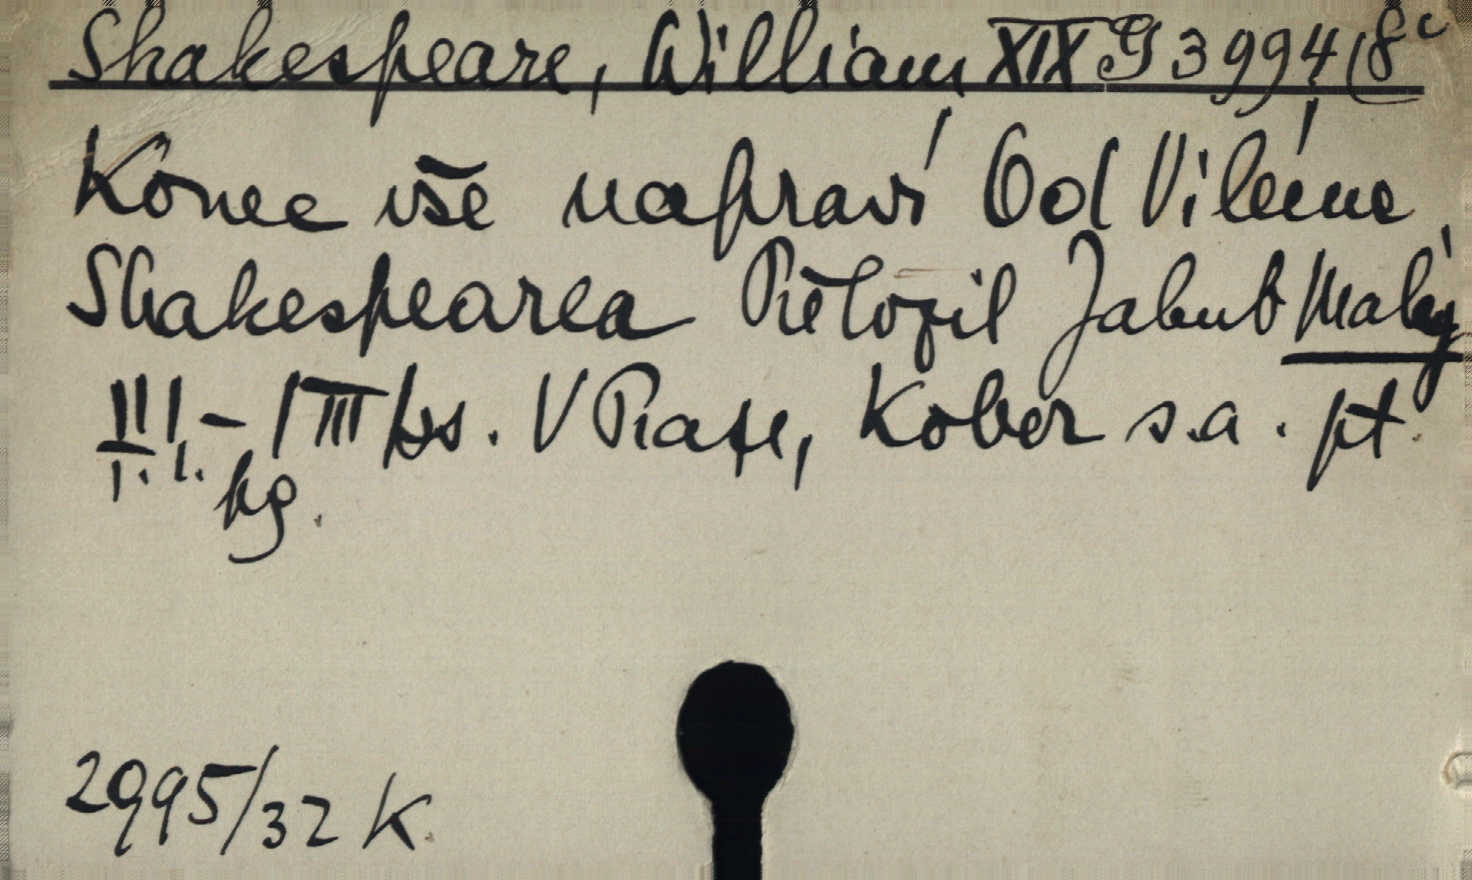 Shakespeare, William XIX G 3994 (8°
Konec vše napraví Od Viléma
Shakespearea Přeložil Jakub Malý
V Praze, Kober s.a. pt.
kg.
2995/32 K.